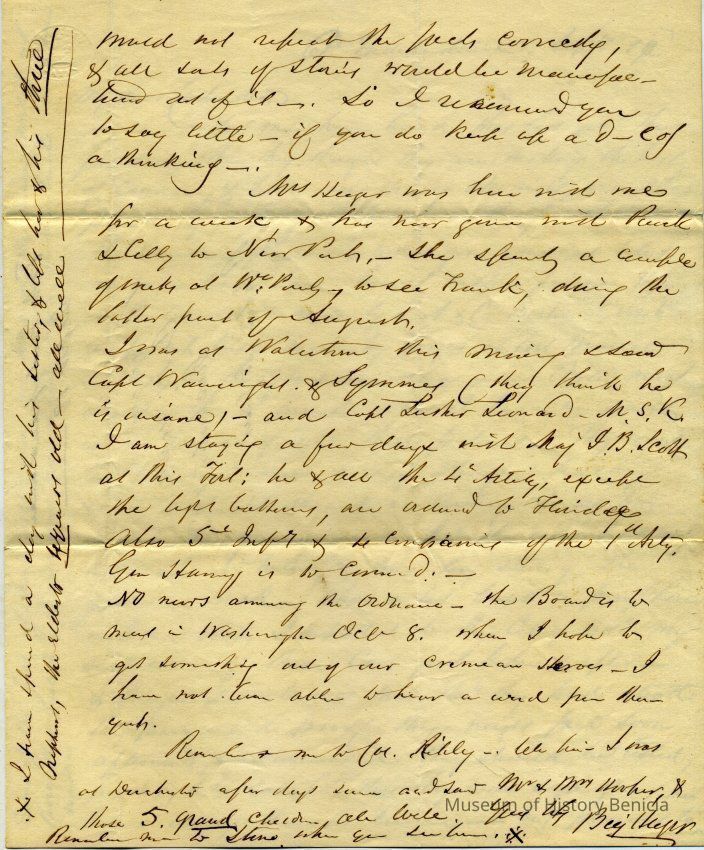 would not repeat the facts correctly,
& all sorts of stories would be manufac-
tured as of it —. So I recommend you
to say little — if you do keep up a d—l of
a thinking —.
Mrs Huger was here with me
for a week, & has now gone with
& Celly to New Port, — She spent a couple
of weeks at Wt Point — to see Frank, during the
latter part of August.
I was at Watertown this morning & saw
Capt Wainwright. & Symmes (they think he
is insane) — and Capt Luther Leonard — M.S.K.
I am staying a few days with Maj J. B. Scott
at this Fort; he & all the 4t Artily, except
the light batteries, are ordered to Florida
Also 5t Infy & 4 companies of the 1st Arty.
Gen Harney is to Comm'd. —
No news among the Ordnance — the Board is to
meet in Washington Octr 8. when I hope to
get something out of our Crimean Heroes — I
have not been able to hear a word from them
yet.
Remember me to Col. Ripley —. tell him I was
at Dorchester a few days since and saw Mr & Mrs Hooper, &
those 5. grand children all well. Yrs Benj Huger
Remember me to Stone when you see him. x
x I have spent a day with his sister, & all her & his three
Nephews, the eldest years old — all well
Museum of History Benicia